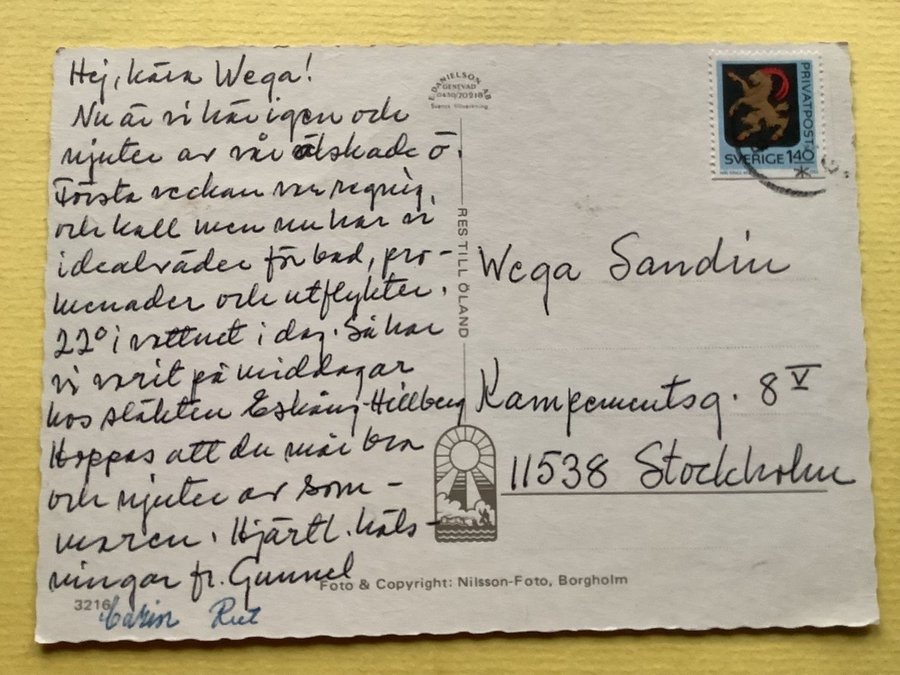 Hej, kära Wega!
Nu är vi här igen och
njuter av vår älskade ö.
Första veckan var regnig,
och kall men nu har vi
idealväder för bad, pro-
menader och utflykter.
22° i vattnet i dag. Så har
vi varit på middagar
hos släkten Hillberg
Hoppas att du mår bra
och njuter av som-
maren. Hjärtl. häls-
ningar fr. Gunnel
Carin Rut
3216
E. DANIELSON AB
GENEVAD
0430/70218
Svensk tillverkning
RES TILL ÖLAND
PRIVATPOST
SVERIGE 140
Wega Sandin
Kampementsg. 8 V
11538 Stockholm
Foto & Copyright: Nilsson-Foto, Borgholm